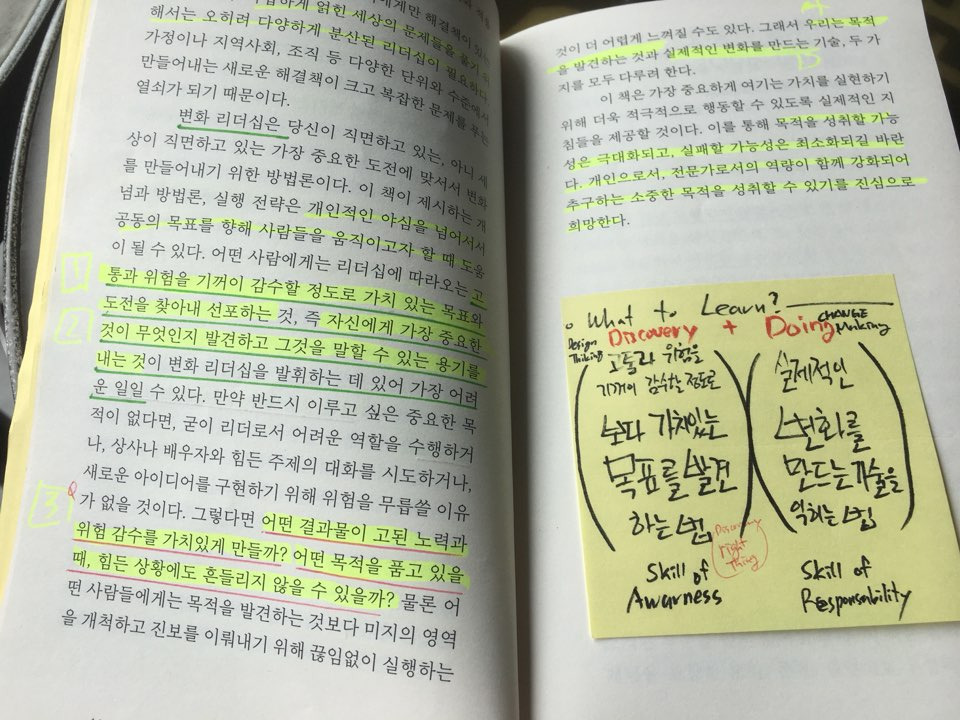 에게만 해결책이 있
하게 얽힌 세상의 문제들을 풀기 위
해서는 오히려 다양하게 분산된 리더십이 필요하다.
가정이나 지역사회, 조직 등 다양한 단위와 수준에서
만들어내는 새로운 해결책이 크고 복잡한 문제를 푸는
열쇠가 되기 때문이다.
변화 리더십은 당신이 직면하고 있는, 아니 세
상이 직면하고 있는 가장 중요한 도전에 맞서서 변화
를 만들어내기 위한 방법론이다. 이 책이 제시하는 개
념과 방법론, 실행 전략은 개인적인 야심을 넘어서서
공동의 목표를 향해 사람들을 움직이고자 할 때 도움
이 될 수 있다. 어떤 사람에게는 리더십에 따라오는 고
1
통과 위험을 기꺼이 감수할 정도로 가치 있는 목표와
2
도전을 찾아내 선포하는 것, 즉 자신에게 가장 중요한
것이 무엇인지 발견하고 그것을 말할 수 있는 용기를
내는 것이 변화 리더십을 발휘하는 데 있어 가장 어려
운 일일 수 있다. 만약 반드시 이루고 싶은 중요한 목
적이 없다면, 굳이 리더로서 어려운 역할을 수행하거
나, 상사나 배우자와 힘든 주제의 대화를 시도하거나,
새로운 아이디어를 구현하기 위해 위험을 무릅쓸 이유
3 Q
가 없을 것이다. 그렇다면 어떤 결과물이 고된 노력과
위험 감수를 가치있게 만들까? 어떤 목적을 품고 있을
때, 힘든 상황에도 흔들리지 않을 수 있을까? 물론 어
떤 사람들에게는 목적을 발견하는 것보다 미지의 영역
을 개척하고 진보를 이뤄내기 위해 끊임없이 실행하는
것이 더 어렵게 느껴질 수도 있다. 그래서 우리는 목적
을 발견하는 것과 실제적인 변화를 만드는 기술, 두 가
지를 모두 다루려 한다.
이 책은 가장 중요하게 여기는 가치를 실현하기
위해 더욱 적극적으로 행동할 수 있도록 실제적인 지
침들을 제공할 것이다. 이를 통해 목적을 성취할 가능
성은 극대화되고, 실패할 가능성은 최소화되길 바란
다. 개인으로서, 전문가로서의 역량이 함께 강화되어
추구하는 소중한 목적을 성취할 수 있기를 진심으로
희망한다.
o What to Learn?
Design Thinking
Discovery + Doing
CHANGE Making
고통과 위험을
기꺼이 감수할 정도로
보다 가치있는
목표를 발견
하는 법
Discovery
right
thing
Skill of
Awarness
실제적인
변화를
만드는 기술을
익히는 법
Skill of
Responsability